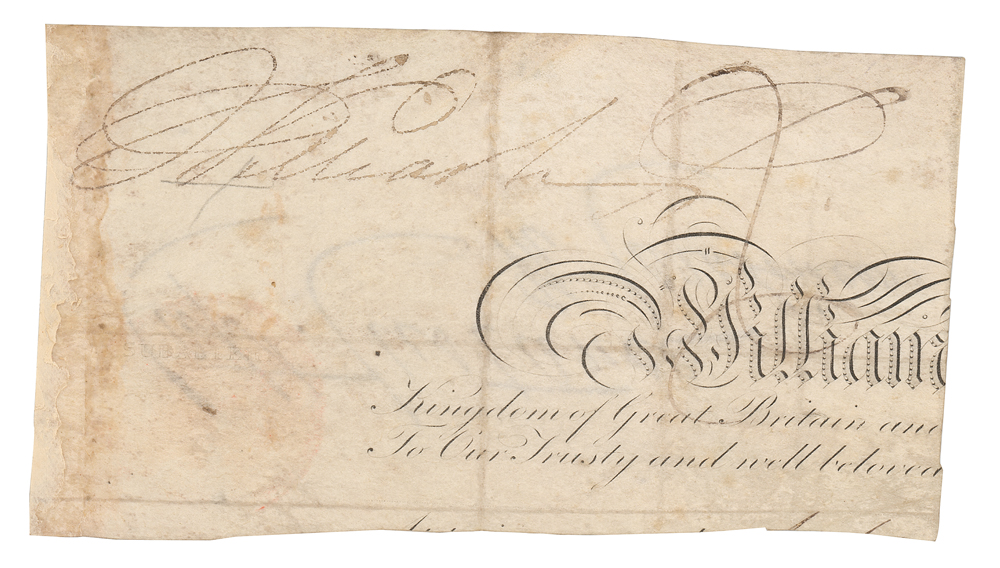 William R
William
Kingdom of Great Britain and
To Our Trusty and well beloved